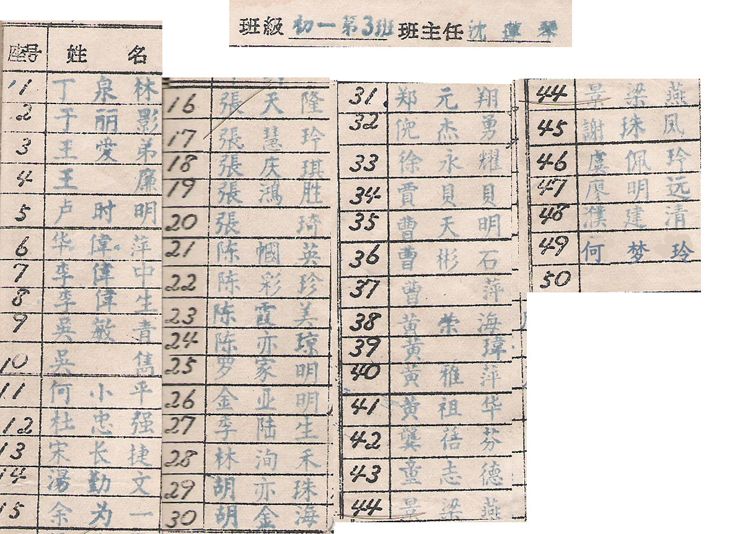 班級 初一第3班 班主任 沈蓮琴
座号 姓名
1 丁泉林
2 于丽影
3 王愛弟
4 王廉
5 卢时明
6 华偉萍
7 李偉中
8 李偉生
9 吳敏青
10 吳雋
11 何小平
12 杜忠强
13 宋长捷
14 湯勤文
15 余为一
16 張天隆
17 張慧玲
18 張庆琪
19 張鴻胜
20 張琦
21 陈帼英
22 陈彩珍
23 陈霞美
24 陈亦琼
25 罗家明
26 金亚明
27 李陆生
28 林洵禾
29 胡亦珠
30 胡金海
31 郑元翔
32 倪杰勇
33 徐永耀
34 賈貝貝
35 曹天明
36 曹彬石
37 曹萍
38 黄荣海
39 黄瑋
40 黄雅萍
41 黄祖华
42 龔蓓芬
43 童志德
44 梁燕
44 梁燕
45 謝珠凤
46 虞佩玲
47 明远
48 濮建清
49 何梦玲
50